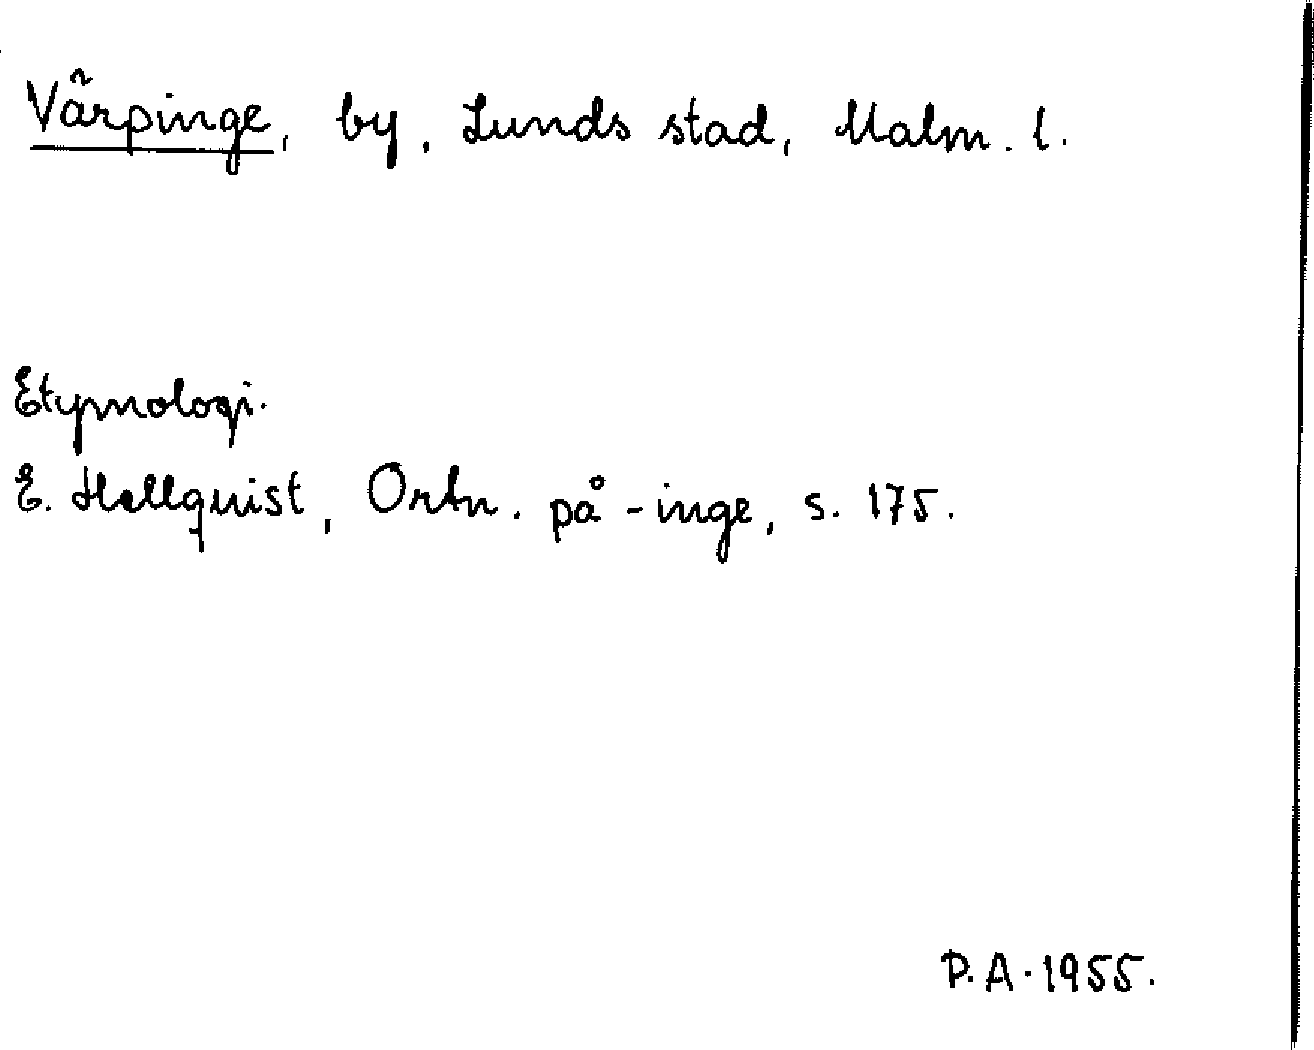 Värpinge, by, Lunds stad, Malm. l.
Etymologi.
E. Hellquist, Ortn. på -inge, s. 175.
P.A. 1955.